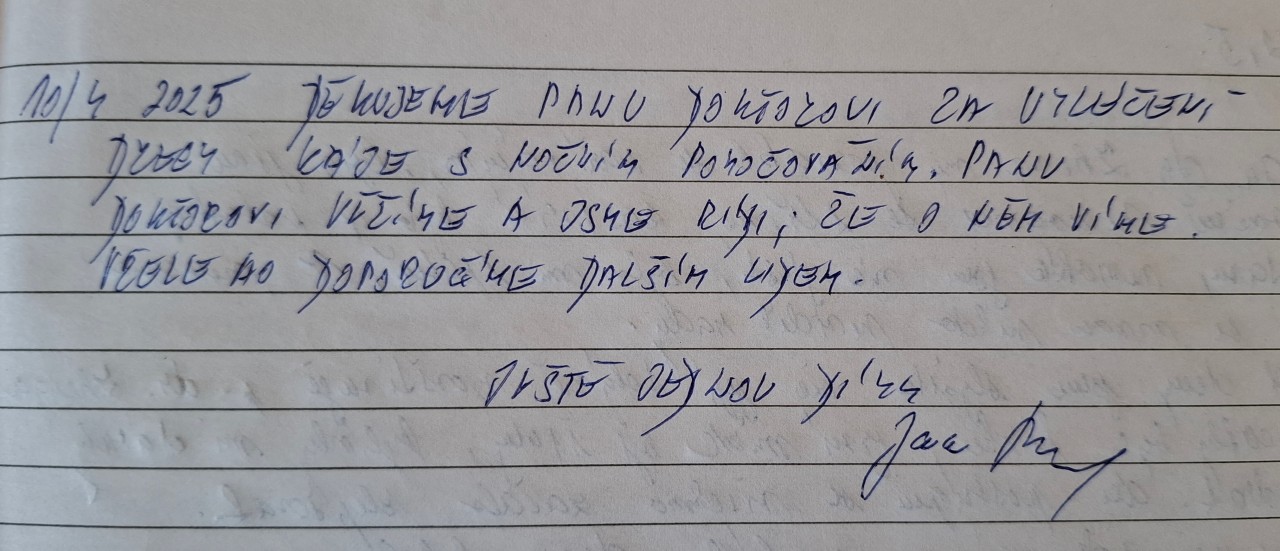 10/4 2025 DĚKUJEME PANU DOKTOROVI ZA VYLÉČENÍ
DCERY KÁJE S NOČNÍM POMOČOVÁNÍM. PANU
DOKTOROVI VĚŘÍME A JSME RÁDI, ŽE O NĚM VÍME.
VŘELE HO DOPORUČÍME DALŠÍM LIDEM.
JEŠTĚ JEDNOU DÍKY
Jana